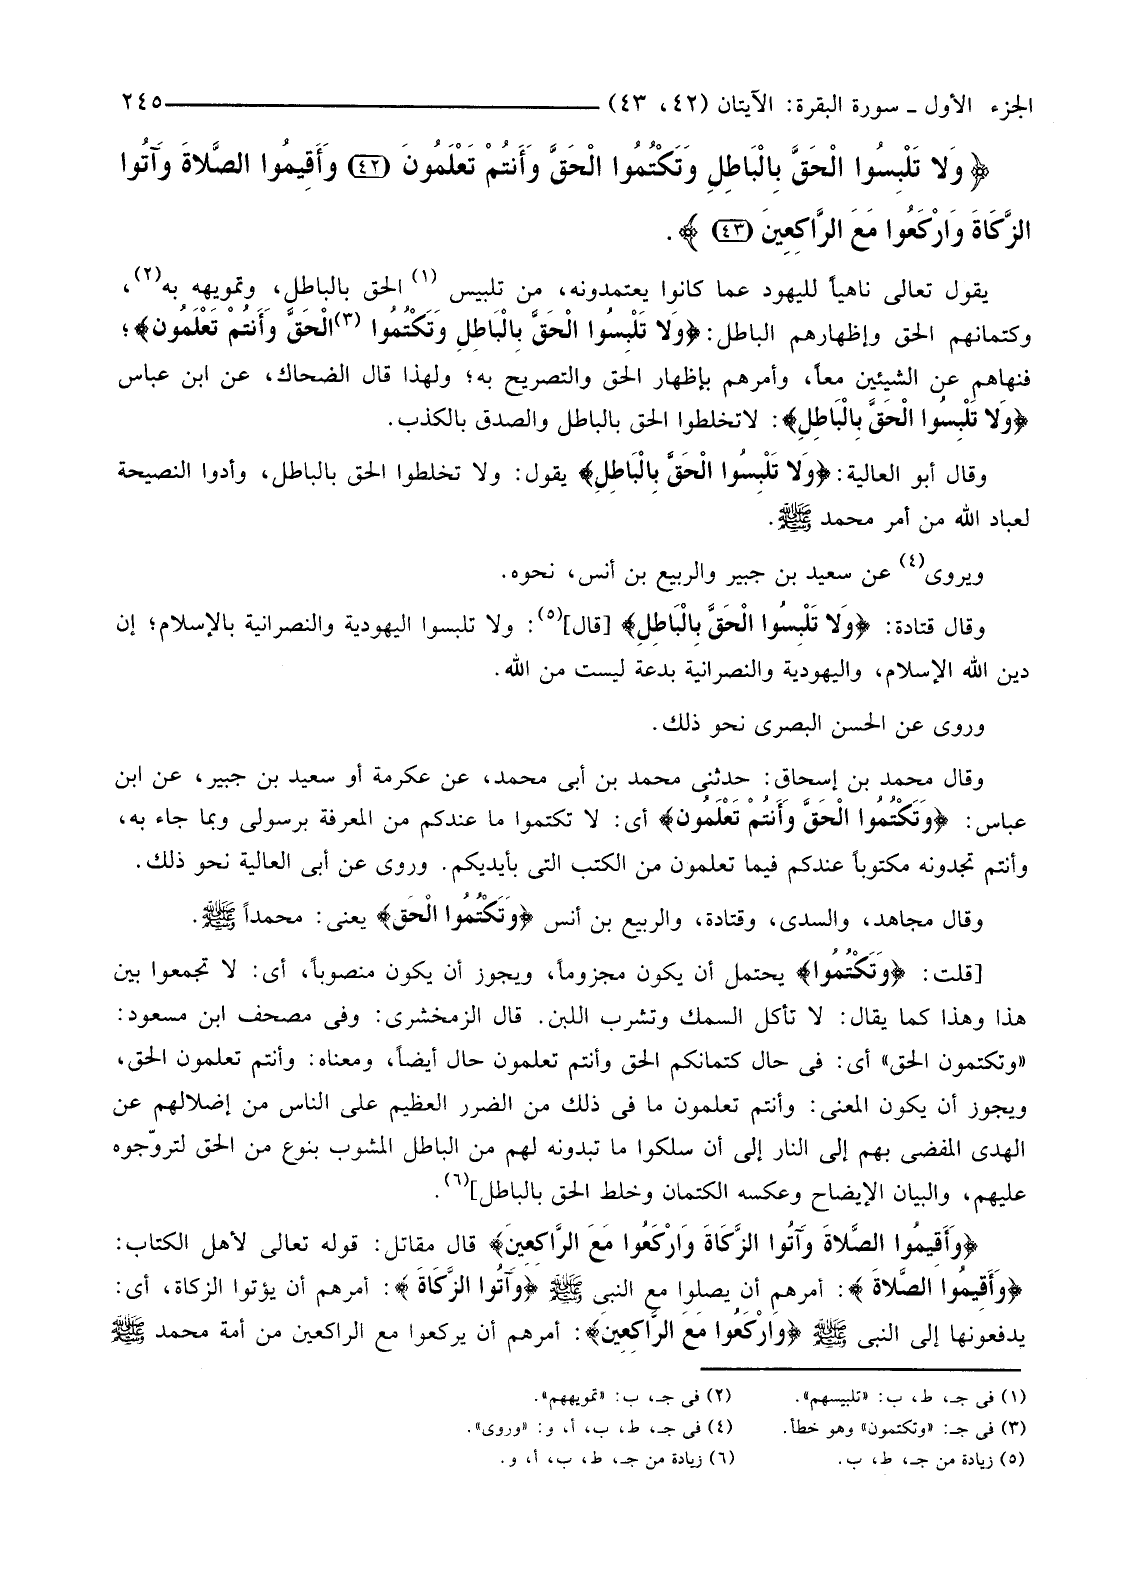 الجزء الأول ـ سورة البقرة: الآيتان (٤٢، ٤٣) ــــــ ٢٤٥
﴿ وَلا تَلْبِسُوا الْحَقَّ بِالْبَاطِلِ وَتَكْتُمُوا الْحَقَّ وَأَنتُمْ تَعْلَمُونَ (٤٢) وَأَقِيمُوا الصَّلاةَ وَآتُوا
الزَّكَاةَ وَارْكَعُوا مَعَ الرَّاكِعِينَ (٤٣) ﴾ .
يقول تعالى ناهياً لليهود عما كانوا يعتمدونه، من تلبيس (١) الحق بالباطل، وتمويهه به(٢)،
وكتمانهم الحق وإظهارهم الباطل: ﴿وَلا تَلْبِسُوا الْحَقَّ بِالْبَاطِلِ وَتَكْتُمُوا (٣)الْحَقَّ وَأَنتُمْ تَعْلَمُون﴾؛
فنهاهم عن الشيئين معاً، وأمرهم بإظهار الحق والتصريح به؛ ولهذا قال الضحاك، عن ابن عباس
﴿وَلا تَلْبِسُوا الْحَقَّ بِالْبَاطِلِ﴾: لاتخلطوا الحق بالباطل والصدق بالكذب.
وقال أبو العالية: ﴿وَلا تَلْبِسُوا الْحَقَّ بِالْبَاطِلِ﴾ يقول: ولا تخلطوا الحق بالباطل، وأدوا النصيحة
لعباد الله من أمر محمد ﷺ.
ويروى(٤) عن سعيد بن جبير والربيع بن أنس، نحوه.
وقال قتادة: ﴿وَلا تَلْبِسُوا الْحَقَّ بِالْبَاطِلِ﴾ [قال](٥): ولا تلبسوا اليهودية والنصرانية بالإسلام؛ إن
دين الله الإسلام، واليهودية والنصرانية بدعة ليست من الله.
وروى عن الحسن البصرى نحو ذلك.
وقال محمد بن إسحاق: حدثنى محمد بن أبى محمد، عن عكرمة أو سعيد بن جبير، عن ابن
عباس: ﴿وَتَكْتُمُوا الْحَقَّ وَأَنتُمْ تَعْلَمُون﴾ أى: لا تكتموا ما عندكم من المعرفة برسولى وبما جاء به،
وأنتم تجدونه مكتوباً عندكم فيما تعلمون من الكتب التى بأيديكم. وروى عن أبى العالية نحو ذلك.
وقال مجاهد، والسدى، وقتادة، والربيع بن أنس ﴿وَتَكْتُمُوا الْحَق﴾ يعنى: محمداً ﷺ.
[قلت: ﴿وَتَكْتُمُوا﴾ يحتمل أن يكون مجزوماً، ويجوز أن يكون منصوباً، أى: لا تجمعوا بين
هذا وهذا كما يقال: لا تأكل السمك وتشرب اللبن. قال الزمخشرى: وفى مصحف ابن مسعود:
«وتكتمون الحق» أى: فى حال كتمانكم الحق وأنتم تعلمون حال أيضاً، ومعناه: وأنتم تعلمون الحق،
ويجوز أن يكون المعنى: وأنتم تعلمون ما فى ذلك من الضرر العظيم على الناس من إضلالهم عن
الهدى المفضى بهم إلى النار إلى أن سلكوا ما تبدونه لهم من الباطل المشوب بنوع من الحق لتروّجوه
عليهم، والبيان الإيضاح وعكسه الكتمان وخلط الحق بالباطل](٦).
﴿وَأَقِيمُوا الصَّلاةَ وَآتُوا الزَّكَاةَ وَارْكَعُوا مَعَ الرَّاكِعِينَ﴾ قال مقاتل: قوله تعالى لأهل الكتاب:
﴿وَأَقِيمُوا الصَّلاةَ ﴾: أمرهم أن يصلوا مع النبى ﷺ ﴿وَآتُوا الزَّكَاةَ ﴾: أمرهم أن يؤتوا الزكاة، أى:
يدفعونها إلى النبى ﷺ ﴿وَارْكَعُوا مَعَ الرَّاكِعِينَ﴾: أمرهم أن يركعوا مع الراكعين من أمة محمد ﷺ
(١) فى جـ، ط، ب: «تلبيسهم». (٢) فى جـ، ب: «تمويههم».
(٣) فى جـ: «وتكتمون» وهو خطأ. (٤) فى جـ، ط، ب، أ، و: «وروى».
(٥) زيادة من جـ، ط، ب. (٦) زيادة من جـ، ط، ب، أ، و.